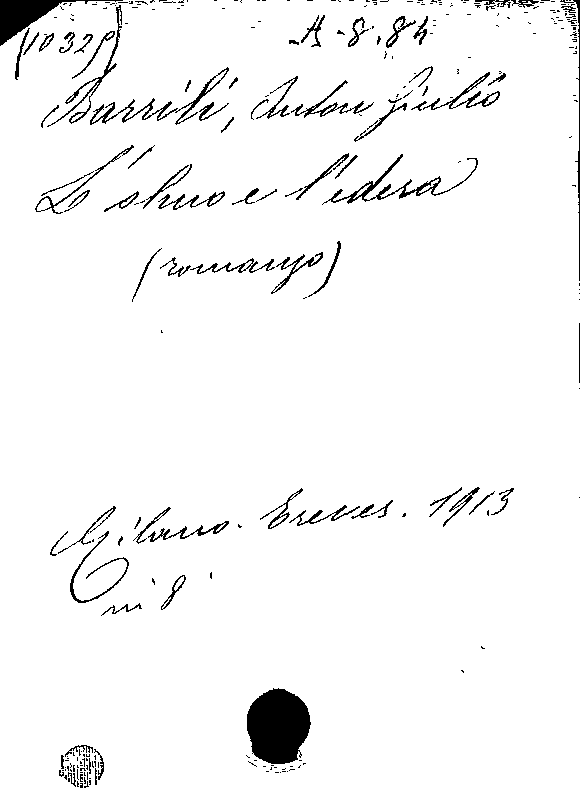 (10329)
A-8.84
Barrili, Anton Giulio
L'olmo e l'edera
(romanzo)
Milano. Treves. 1913
in 8°